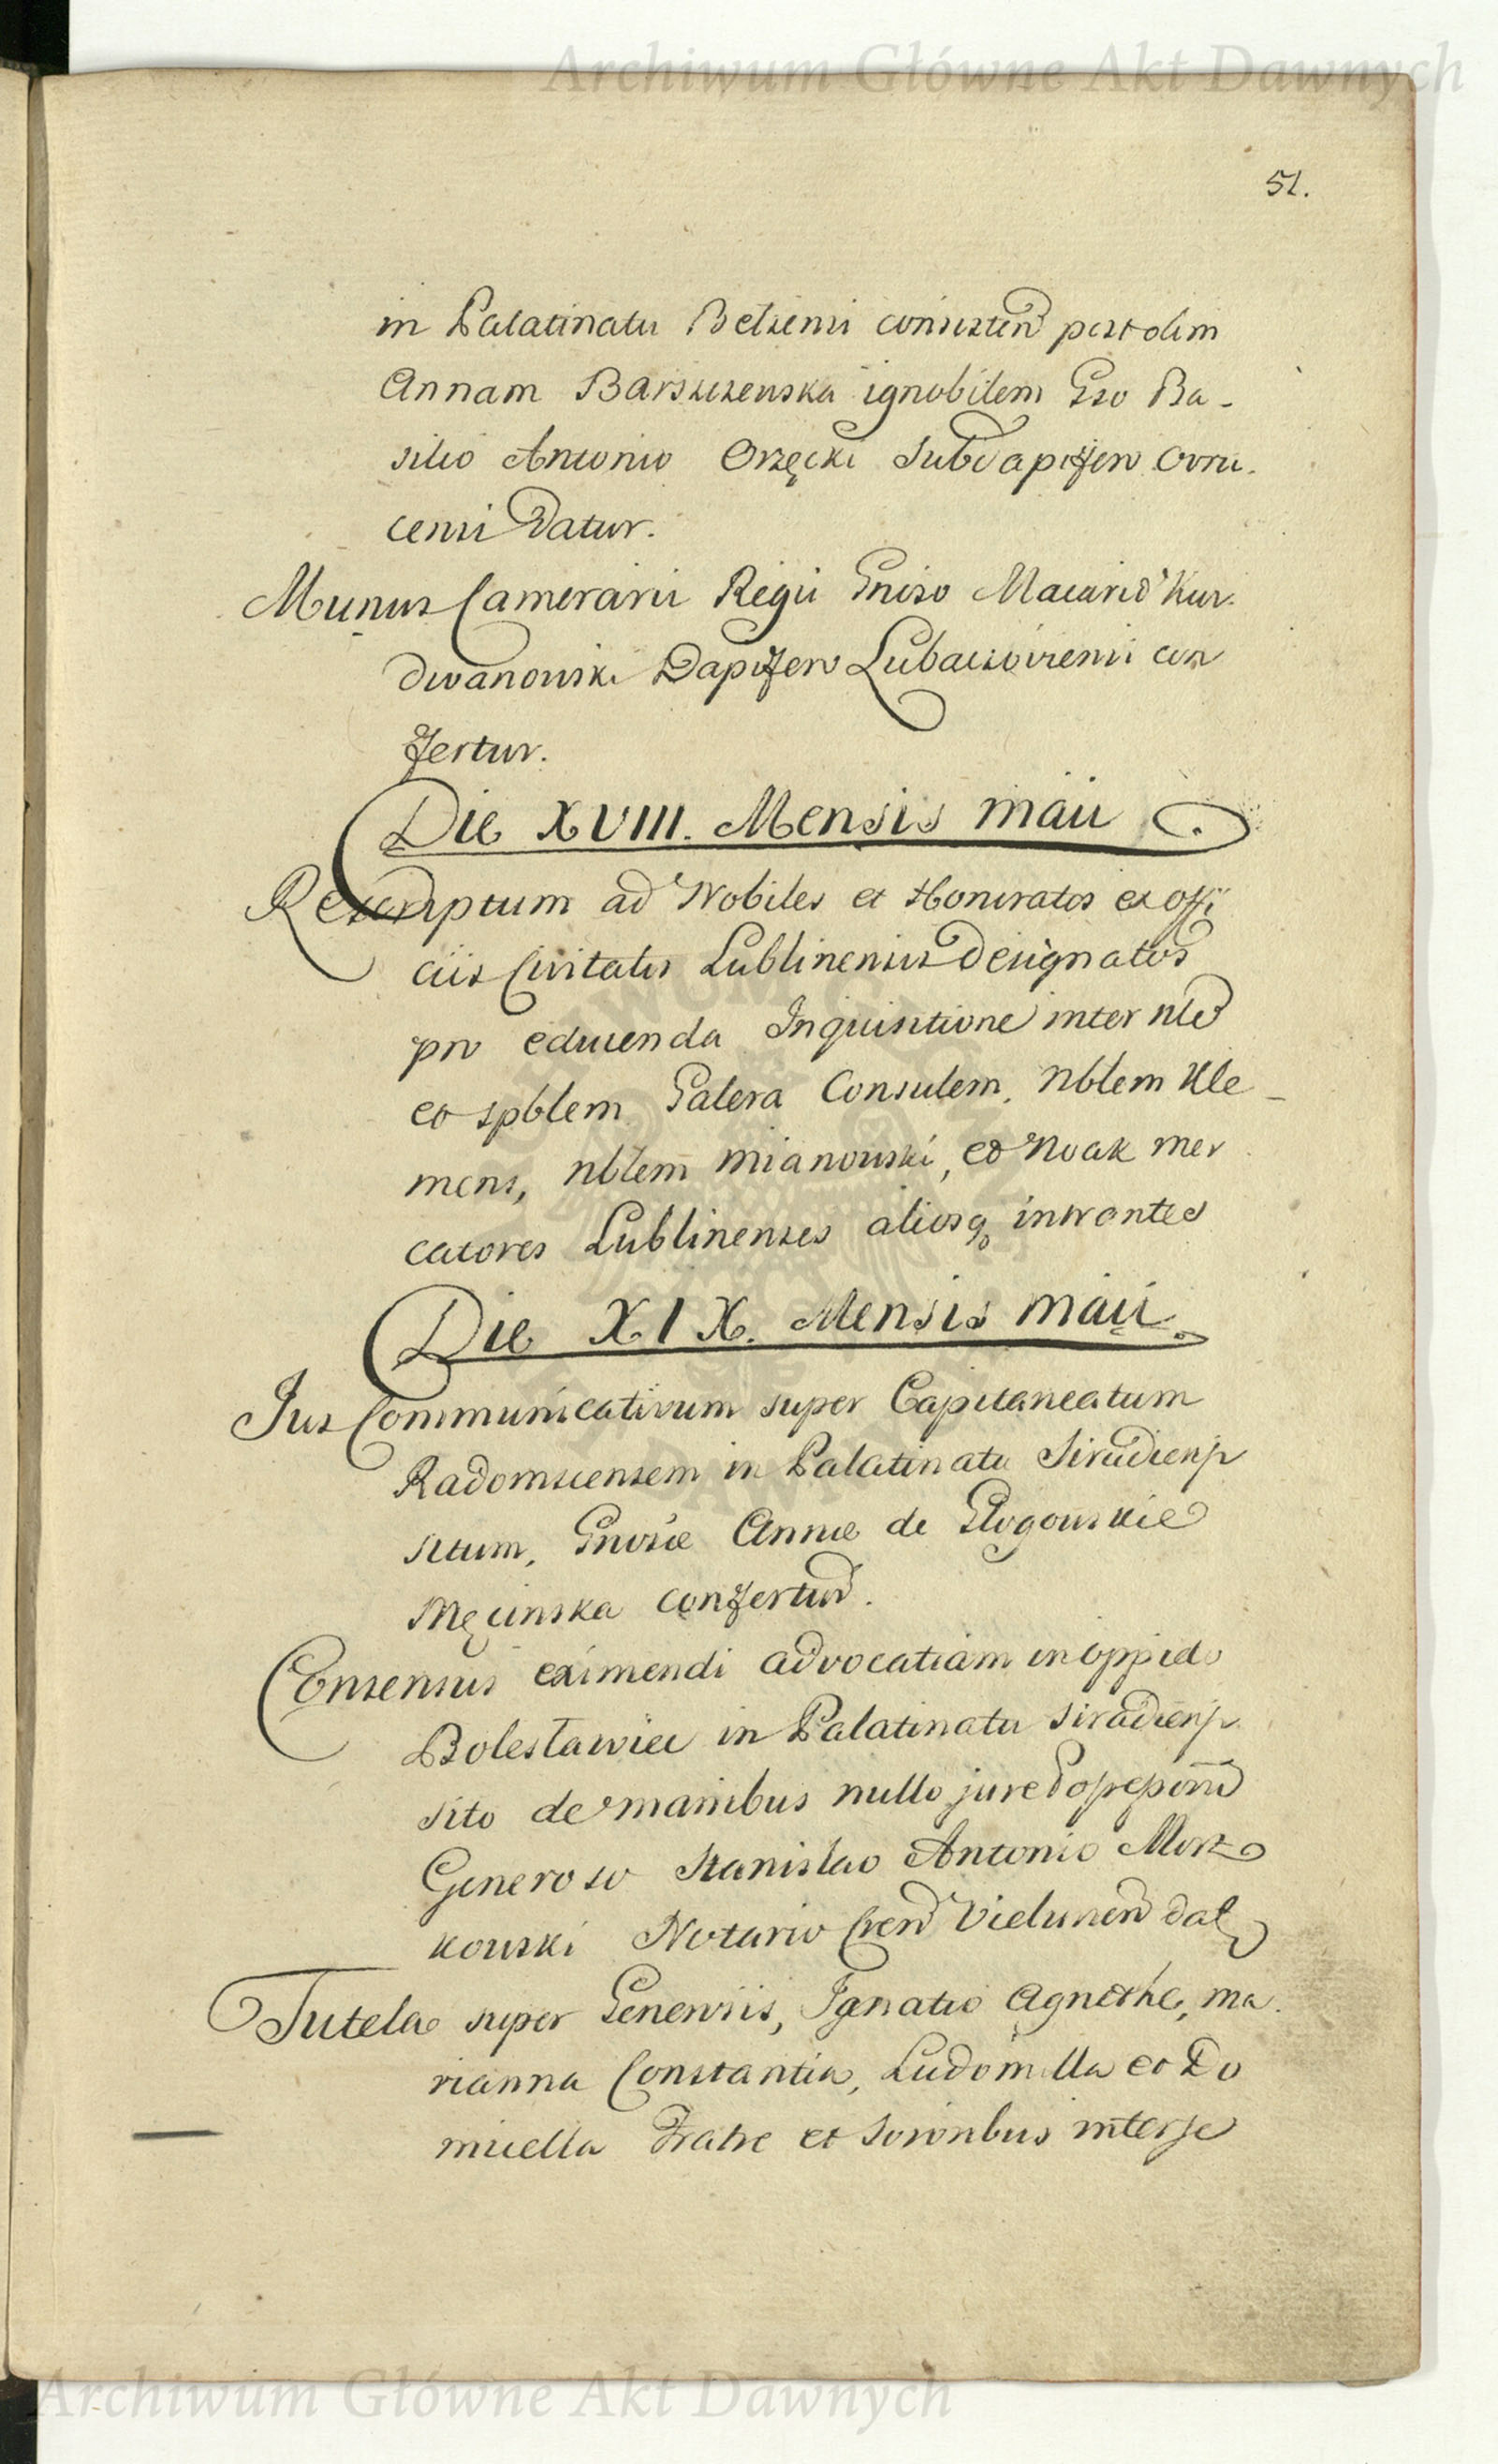 Archiwum Główne Akt Dawnych
51.
in Palatinatu Belzensi consisten post olim
Annam Barszczewska ignobilem Gso Ba-
silio Antonio Orzęcki Subdapifero Ovru-
censi datur.
Munus Camerarii Regii Gniso Macario Kur-
dwanowski Dapifero Lubaczoviensi con
fertur.
Die XVIII. Mensis maii
Rescriptum ad Nobiles et Honoratos ex offi
ciis Civitatis Lublinensis designatos
pro educenda Inquisitione inter nle
et spblem Galera Consulem, Nblem Kle-
mens, nblem mianowski, et Noak mer
catores Lublinenses aliosq intrantes
Die XIX. Mensis maii
Jus Communicativum super Capitaneatum
Radomscensem in Palatinatu Siradiensi
situm, Gnosæ Annæ de Glogowskie
Męcinska confertur.
Consensus eximendi advocatiam in oppido
Bolesławiec in Palatinatu Siradiensi
sito de manibus nullo jure
Generoso Stanislao Antonio Mosz
kowski Notario Cren Vielunen dat
Tutela super Generosis, Ignatio Agnethe, ma
rianna Constantia, Ludomilla et Do
micella Fratre et Sororibus inter se
Archiwum Główne Akt Dawnych